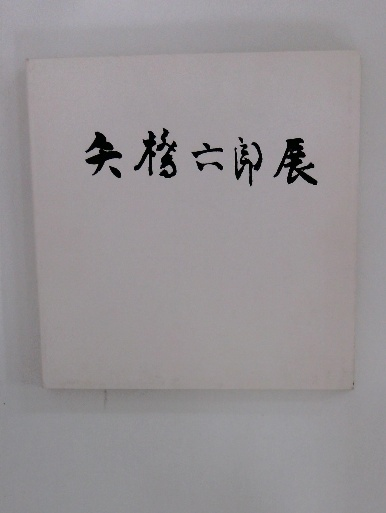 矢橋六郎展